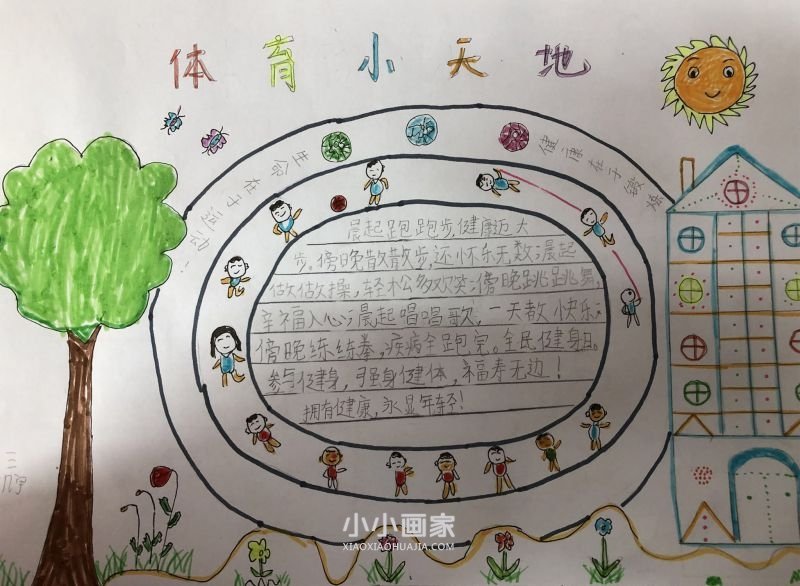 体育小天地
生命在于运动!
健康在于锻炼
晨起跑跑步,健康迈大
步。傍晚散散步,还怀乐无数;晨起
做做操,轻松多欢笑;傍晚跳跳舞,
幸福入心;晨起唱唱歌,一天都快乐;
傍晚练练拳,疾病全跑完。全民健身日。
参与健身,强身健体,福寿无边!
拥有健康,永显年轻!
小小画家
XIAOXIAOHUAJIA.COM